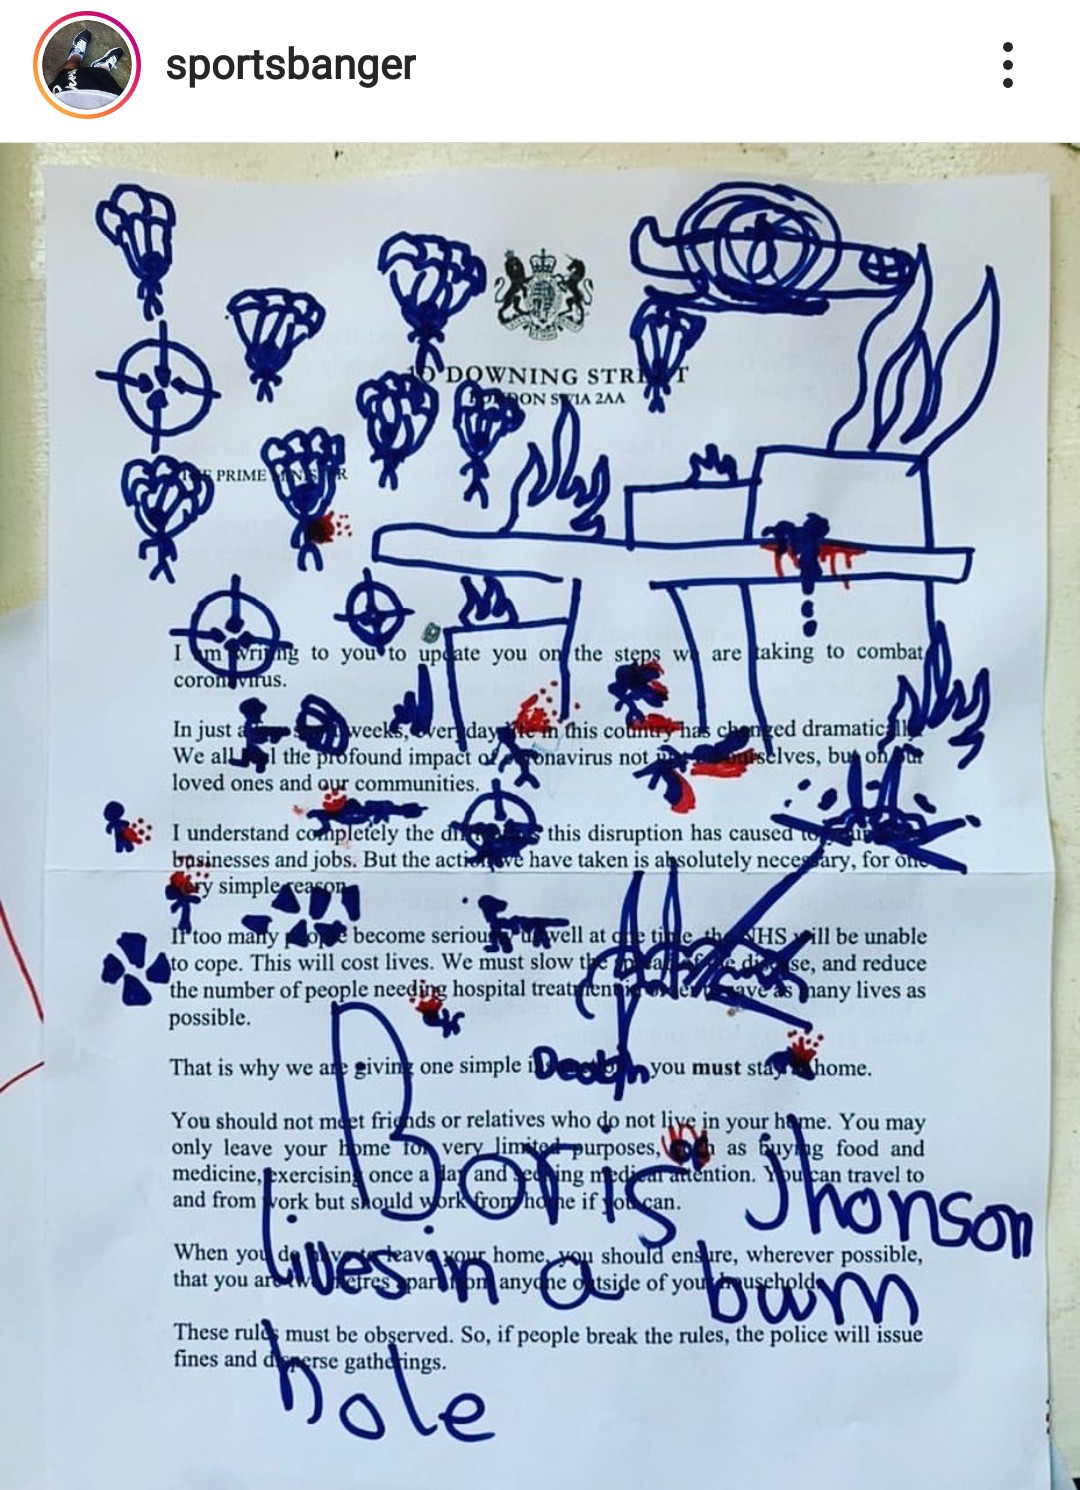 sportsbanger
10 DOWNING STREET
LONDON SW1A 2AA
THE PRIME MINISTER
I am writing to you to update you on the steps we are taking to combat
coronavirus.
In just a weeks, everyday life in this country has changed dramatically.
We all feel the profound impact of coronavirus not just on ourselves, but on our
loved ones and our communities.
I understand completely the this disruption has caused to your
businesses and jobs. But the action we have taken is absolutely necessary, for one
very simple reason.
If too many people become seriously unwell at one time, the NHS will be unable
to cope. This will cost lives. We must slow the spread of the disease, and reduce
the number of people needing hospital treatment in order to save as many lives as
possible.
That is why we are giving one simple Death you must stay at home.
You should not meet friends or relatives who do not live in your home. You may
only leave your home for very limited purposes, such as buying food and
medicine, exercising once a day and seeking medical attention. You can travel to
and from work but should work from home if you can.
Boris Jhonson
When you do have to leave your home, you should ensure, wherever possible,
that you are two metres apart from anyone outside of your household.
lives in a bum
These rules must be observed. So, if people break the rules, the police will issue
fines and disperse gatherings.
hole